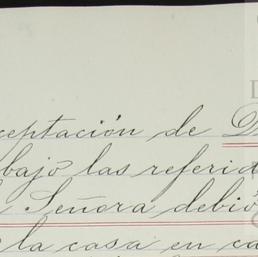 ceptación de D
bajo las referid
Señora debió
la casa en ca